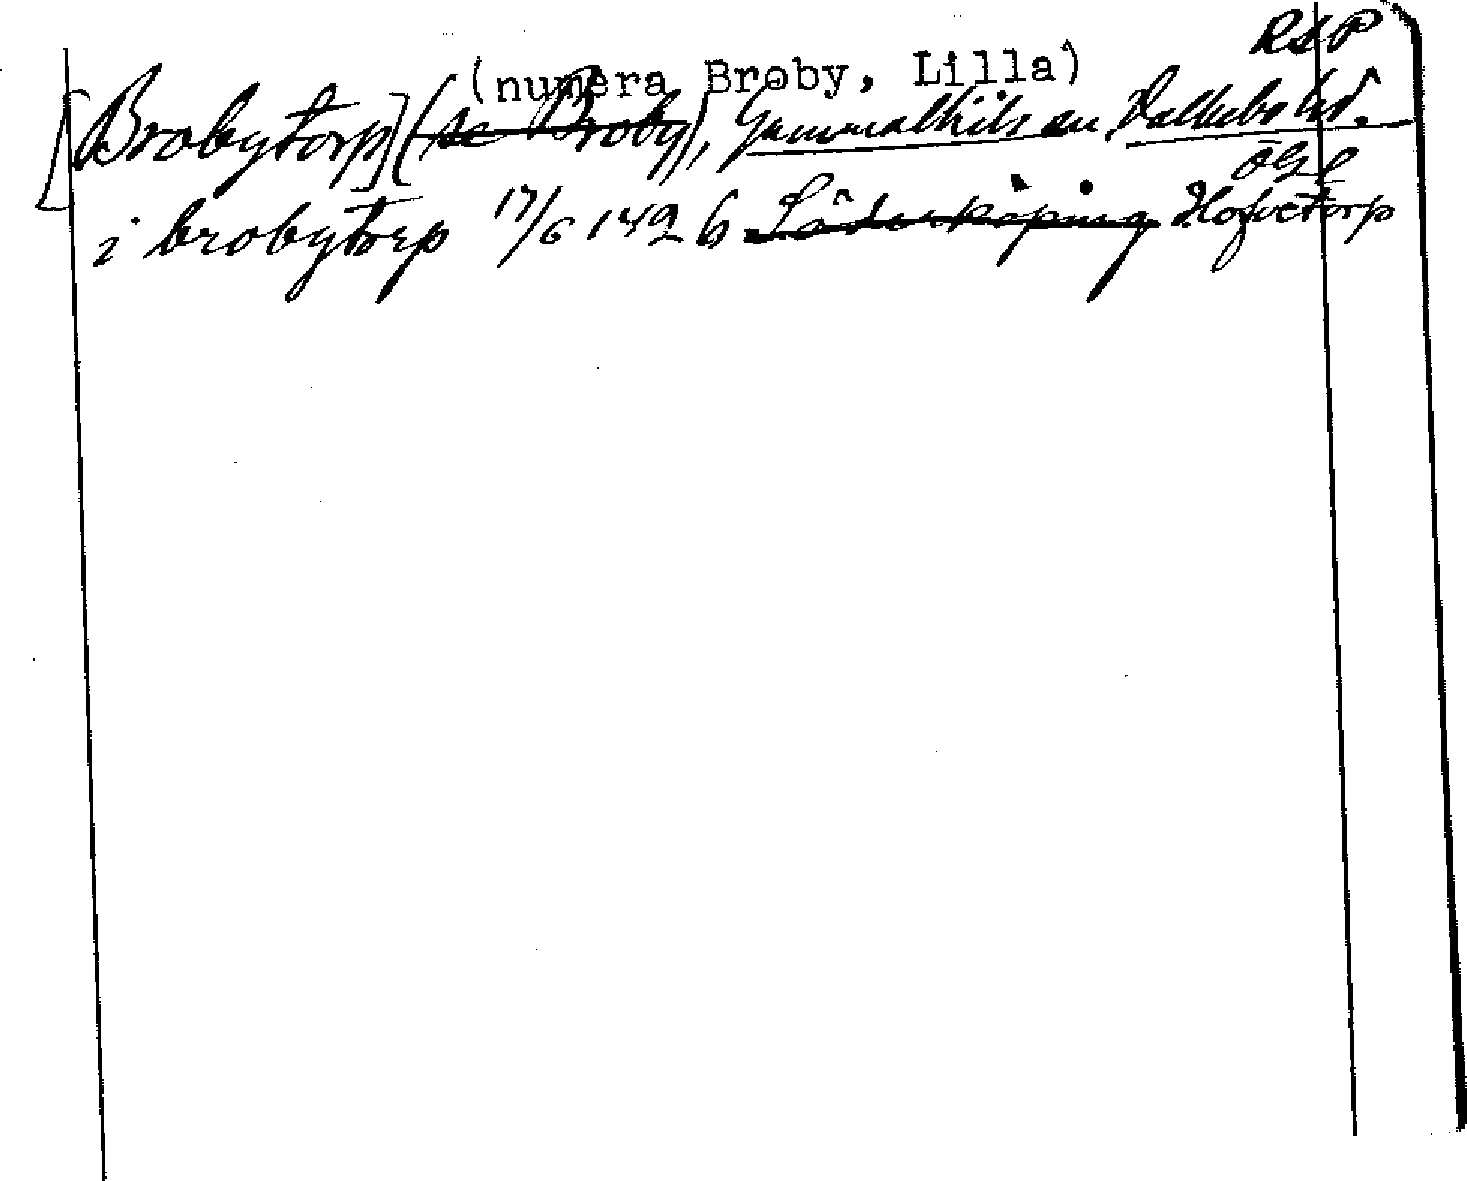 RSP
(numera Broby, Lilla)
[Brobytorp] (se Broby), Gammalkils sn, Valkebo hd.
ÖGL
i brobytorp 17/6 1492 b Söderköping Hofvetorp